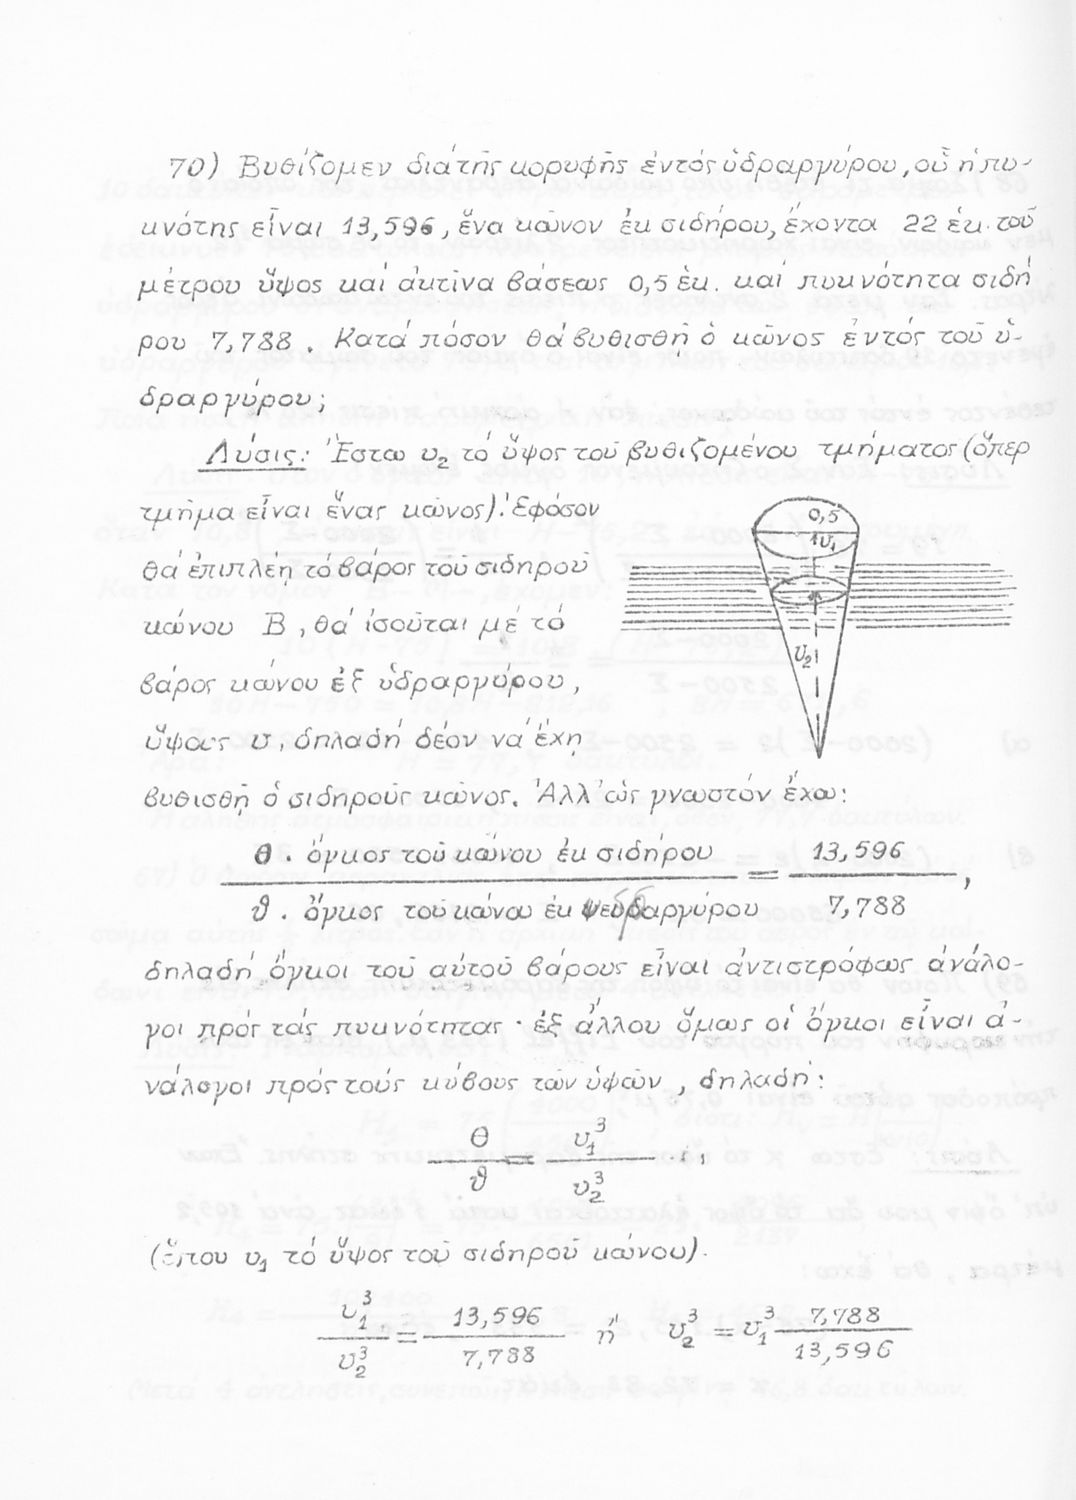 70) Βυθίζομεν διά τῆς κορυφῆς ἐντός ὑδραργύρου, οὗ ἡ πυ-
κνότης εἶναι 13,596, ἕνα κῶνον ἐκ σιδήρου, ἔχοντα 22 ἑκ. τοῦ
μέτρου ὕψος καί ἀκτῖνα βάσεως 0,5 ἑκ. καί πυκνότητα σιδή
ρου 7,788. Κατά πόσον θά βυθισθῇ ὁ κῶνος ἐντός τοῦ ὑ-
δραργύρου;
Λύσις: Ἔστω υ₂ τό ὕψος τοῦ βυθιζομένου τμήματος (ὅπερ
τμῆμα εἶναι ἕνας κῶνος). Ἐφόσον
θά ἐπιπλέῃ τό βάρος τοῦ σιδηροῦ
κώνου Β, θά ἰσοῦται μέ τό
βάρος κώνου ἐξ ὑδραργύρου,
ὕψους υ, δηλαδή δέον νά ἔχῃ
βυθισθῇ ὁ σιδηροῦς κῶνος. Ἀλλ' ὡς γνωστόν ἔχω:
0,5
υ₁
υ₂
Θ. ὄγκος τοῦ κώνου ἐκ σιδήρου / θ. ὄγκος τοῦ κώνου ἐκ ὑδραργύρου = 13,596 / 7,788 ,
δηλαδή ὄγκοι τοῦ αὐτοῦ βάρους εἶναι ἀντιστρόφως ἀνάλο-
γοι πρός τάς πυκνότητας· ἐξ ἄλλου ὅμως οἱ ὄγκοι εἶναι ἀ-
νάλογοι πρός τούς κύβους τῶν ὑψῶν, δηλαδή:
Θ / θ = υ₁³ / υ₂³
(ὅπου υ₁ τό ὕψος τοῦ σιδηροῦ κώνου).
υ₁³ / υ₂³ = 13,596 / 7,788 ἤ υ₂³ = υ₁³ 7,788 / 13,596